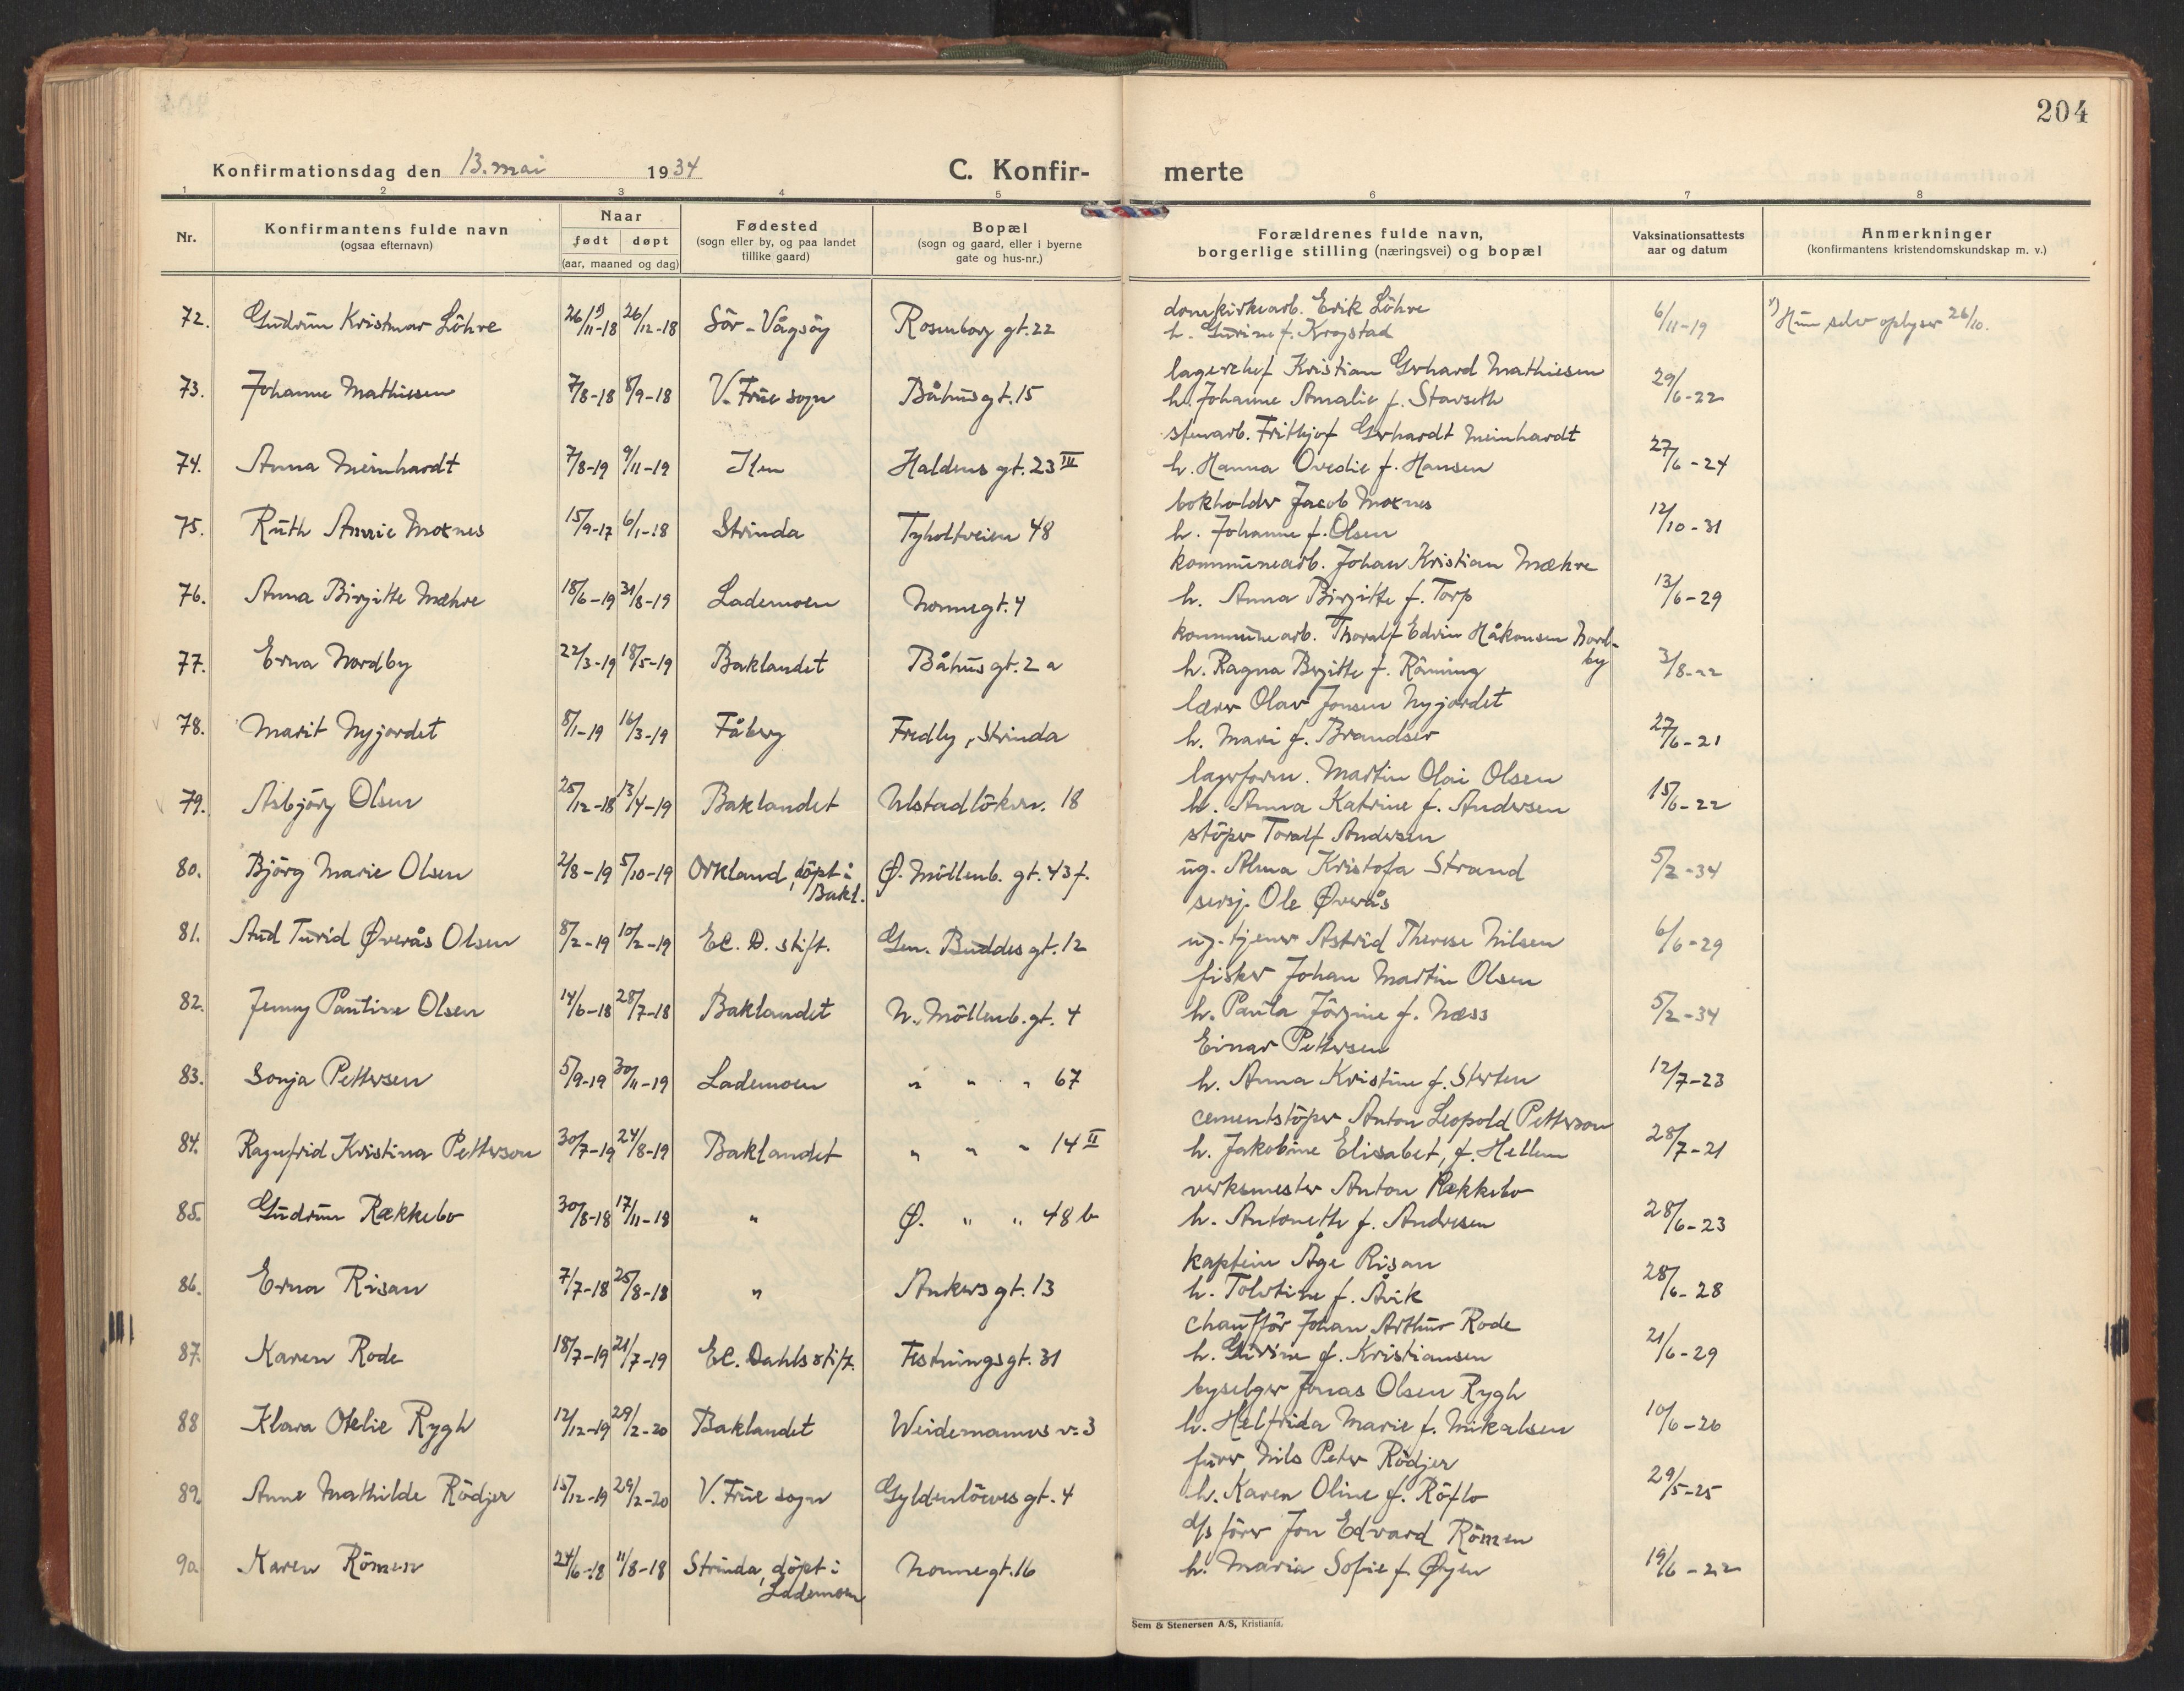 204
Konfirmationsdag den 13. mai 1934 C. Konfir- merte
1 2 3 4 5 6 7 8
Nr. Konfirmantens fulde navn (ogsaa efternavn) Naar født døpt (aar, maaned og dag) Fødested (sogn eller by, og paa landet tillike gaard) Bopæl (sogn og gaard, eller i byerne gate og hus-nr.) Forældrenes fulde navn, borgerlige stilling (næringsvei) og bopæl Vaksinationsattests aar og datum Anmerkninger (konfirmantens kristendomskundskap m. v.)
domkirkearb. Erik Löhre
72. Gudrun Kristmar Löhre 26/11-18 1) 26/12-18 Sör-Vågsöy Rosenborg gt. 22 h. Gurine f. Krogstad 6/11-19 1) Hun selv oplyser 26/10.
lagerchef Kristian Gerhard Mathiesen
73. Johanne Mathiesen 7/8-18 8/9-18 V. Frue sogn Båhus gt. 15 h. Johanne Amalie f. Stavseth 29/6-22
stenarb. Frithjof Gerhardt Meinhardt
74. Anna Meinhardt 7/8-19 9/11-19 Ilen Haldens gt. 23 III h. Hanna Ovedie f. Hansen 27/6-24
bokholder Jacob Moxnes
75. Ruth Annie Moxnes 15/9-17 6/1-18 Strinda Tyholtveien 48 h. Johanne f. Olsen 12/10-31
kommunearb. Johan Kristian Mæhre
76. Anna Birgitte Mæhre 18/6-19 31/8-19 Lademoen Nonnegt. 4 h. Anna Birgitte f. Torp 13/6-29
kommunearb. Thoralf Edvin Håkonsen Nord-
77. Erna Nordby 22/3-19 18/5-19 Baklandet Båhus gt. 2 a h. Ragna Birgitte f. Röning by 3/8-22
lærer Olav Jonsen Nyjordet
78. Marit Nyjordet 8/1-19 16/3-19 Fåberg Fredly, Strinda h. Mari f. Brandser 27/6-21
lagerform. Martin Olai Olsen
79. Asbjörg Olsen 25/12-18 13/4-19 Baklandet Ulstadlökvn. 18 h. Anna Katrine f. Andersen 15/6-22
stöper Toralf Andersen
80. Björg Marie Olsen 2/8-19 5/10-19 Orkland, döpt i Ø. Möllenb. gt. 43 f. ug. Alma Kristofa Strand 5/2-34
Bakl. sersj. Ole Øverås
81. Aud Turid Øverås Olsen 8/2-19 10/2-19 E.C. D. stift. Gen. Buddes gt. 12 ug. tjener Astrid Therese Nilsen 6/6-29
fisker Johan Martin Olsen
82. Jenny Pauline Olsen 14/6-18 28/7-18 Baklandet N. Möllenb. gt. 4 h. Paula Jörgine f. Næss 5/2-34
Einar Pettersen
83. Sonja Pettersen 5/9-19 30/11-19 Lademoen " " " 67 h. Anna Kristine f. Sterten 12/7-23
cementstöper Anton Leopold Petterson
84. Ragnfrid Kristina Petterson 30/7-19 24/8-19 Baklandet " " " 14 II h. Jakobine Elisabet, f. Hellem 28/7-21
verksmester Anton Rækkebo
85. Gudrun Rækkebo 30/8-18 17/11-18 " Ø. " " 48 b h. Antonette f. Andresen 28/6-23
kaptein Åge Risan
86. Erna Risan 7/7-18 25/8-18 " Ankers gt. 13 h. Tolotine f. Åvik 28/6-28
chaufför Johan Arthur Rode
87. Karen Rode 18/7-19 21/7-19 E.C. Dahls stift. Festnings gt. 31 h. Gurine f. Kristiansen 21/6-29
byselger Jonas Olsen Rygh
88 Klara Otelie Rygh 12/12-19 29/2-20 Baklandet Weidemanns v. 3 h. Helfrida Marie f. Mikalsen 10/6-26
furer Nils Peter Rödjer
89. Anne Mathilde Rödjer 15/12-19 29/2-20 V. Frue sogn Gyldenlöves gt. 4 h. Karen Oline f. Röflo 29/5-25
d/s förer Jon Edvard Römen
90 Karen Römen 24/6-18 11/8-18 Strinda, döpt i Nonnegt. 16 h. Maria Sofie f. Øyen 19/6-22
Lademoen
Sem & Stenersen A/S, Kristiania.